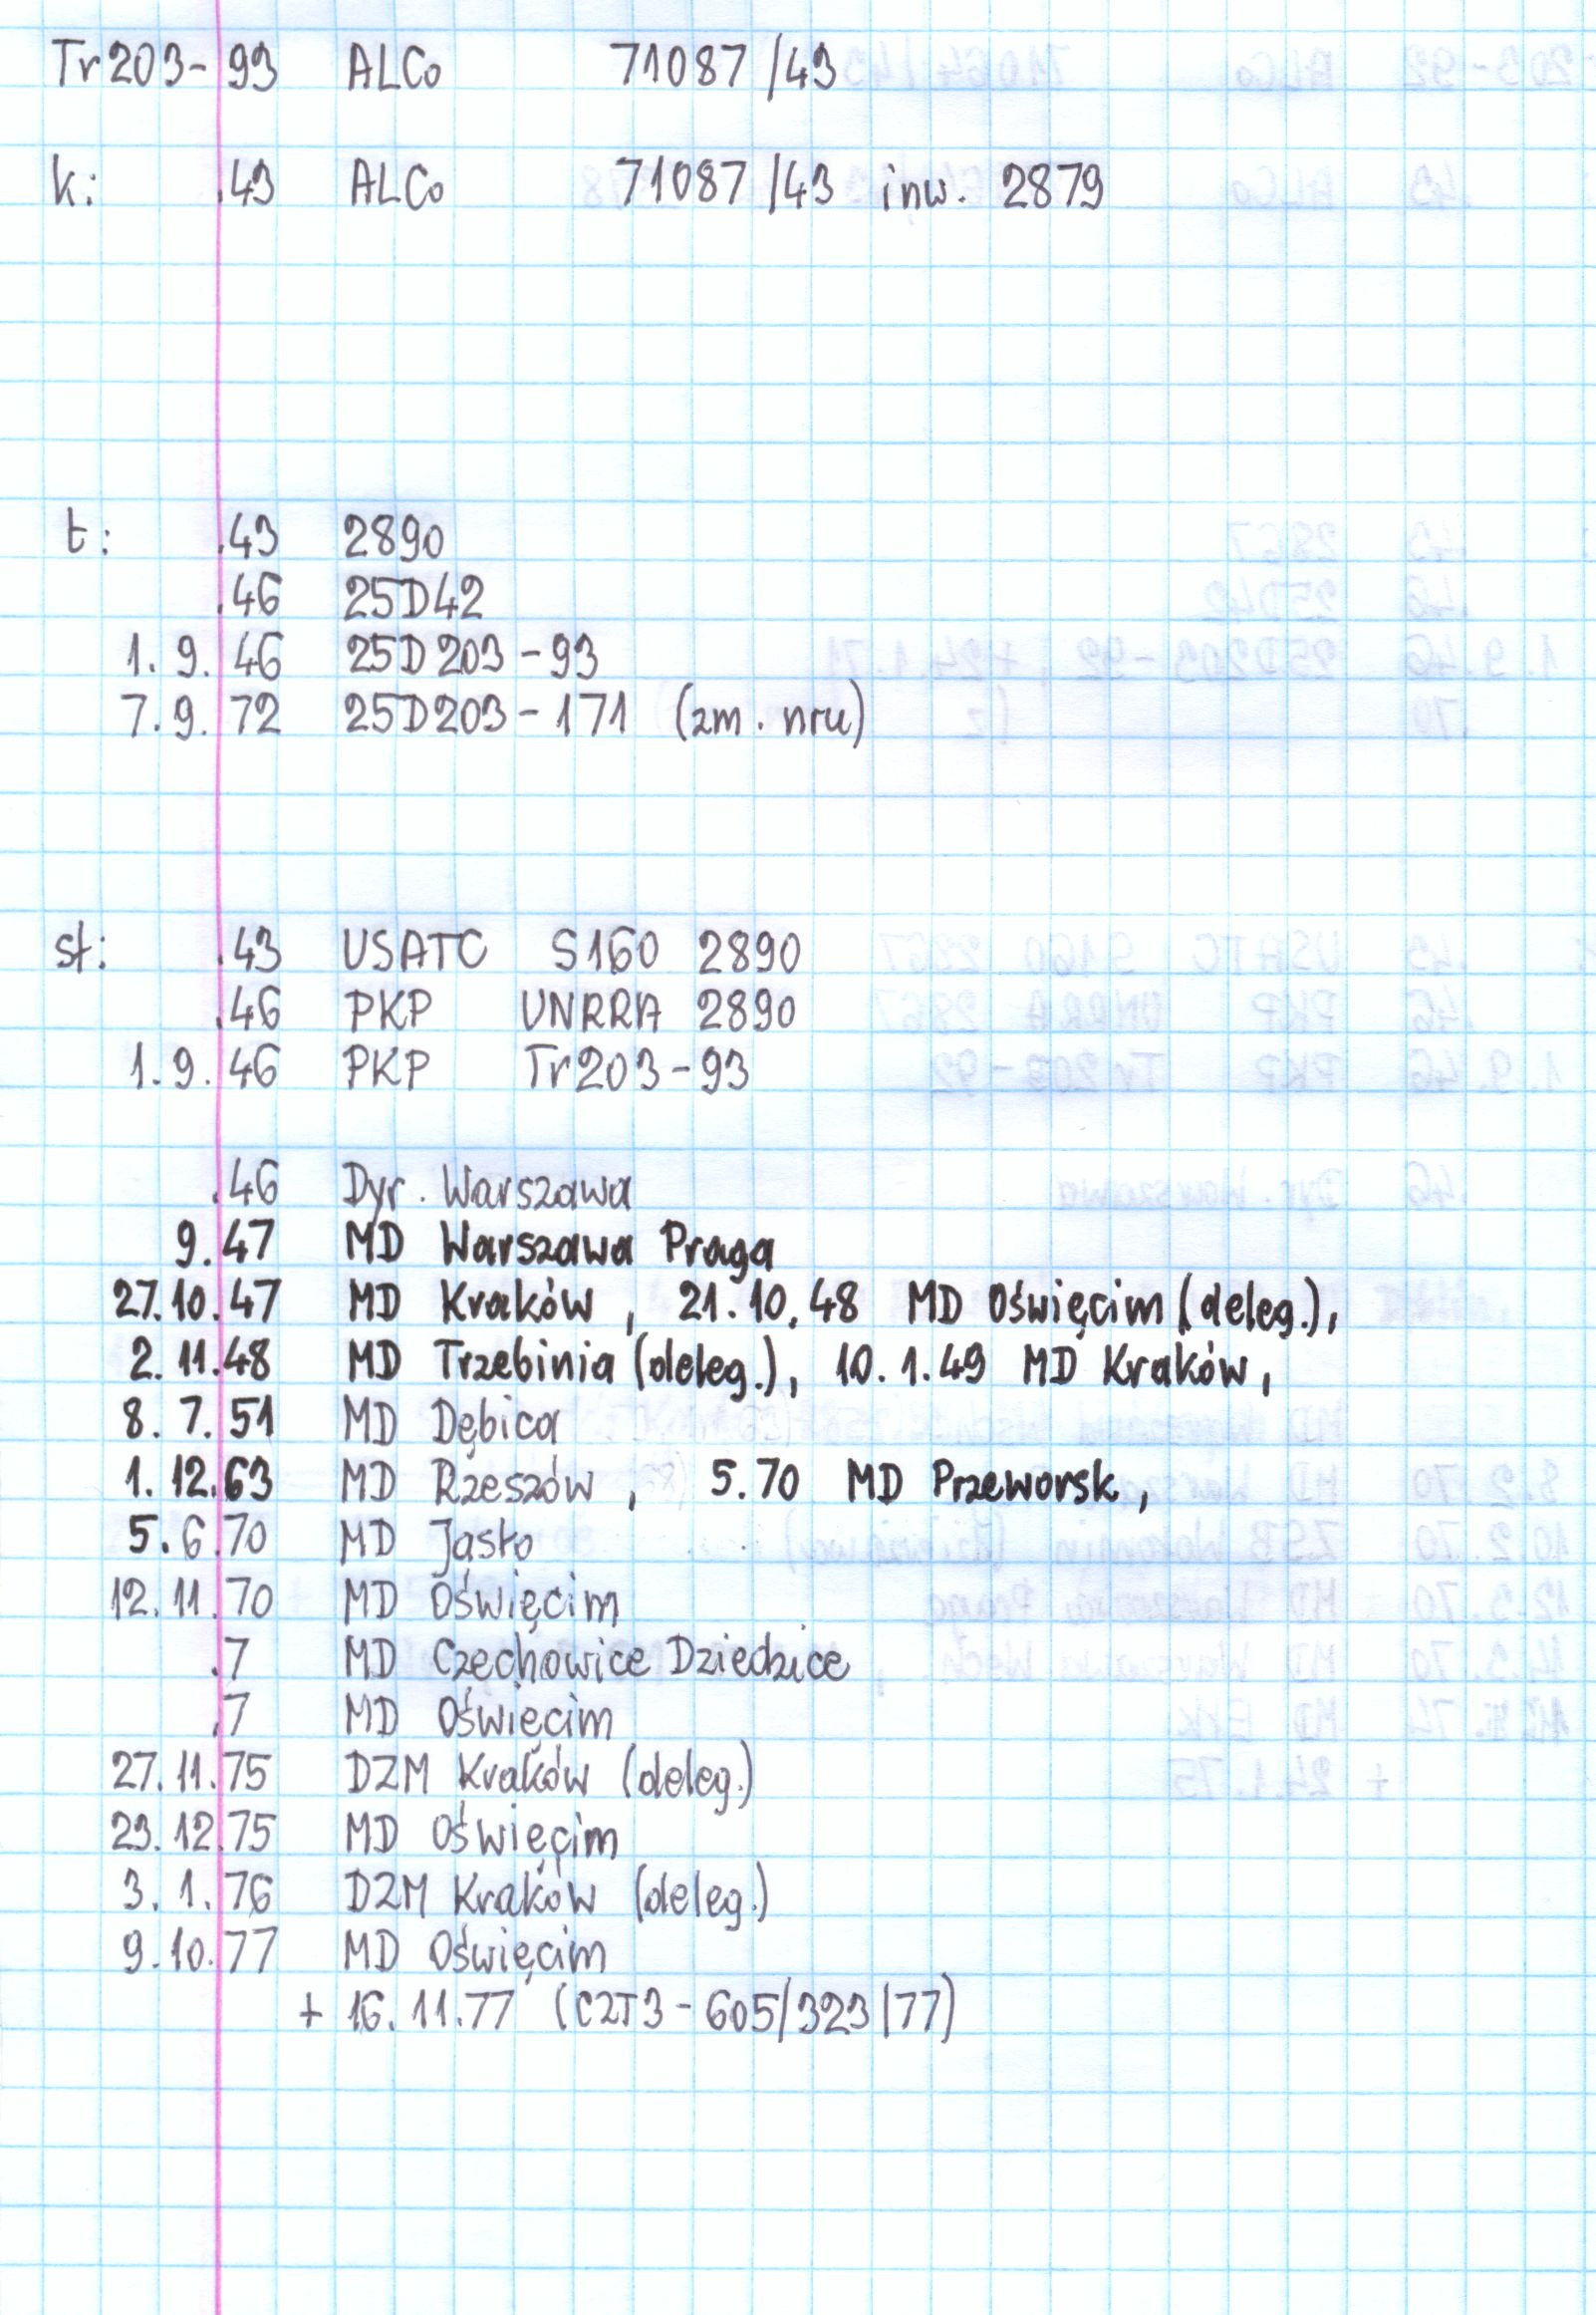 Tr203-93 ALCo 71087/43
k: .43 ALCo 71087/43 inw. 2879
t: .43 2890
.46 25D42
1.9.46 25D203-93
7.9.72 25D203-171 (zm. nru)
st: .43 USATC S160 2890
.46 PKP UNRRA 2890
1.9.46 PKP Tr203-93
.46 Dyr. Warszawa
9.47 MD Warszawa Praga
27.10.47 MD Kraków, 21.10.48 MD Oświęcim (deleg.),
2.11.48 MD Trzebinia (deleg.), 10.1.49 MD Kraków,
8.7.51 MD Dębica
1.12.63 MD Rzeszów, 5.70 MD Przeworsk,
5.6.70 MD Jasło
12.11.70 MD Oświęcim
.7 MD Czechowice Dziedzice
.7 MD Oświęcim
27.11.75 DZM Kraków (deleg.)
23.12.75 MD Oświęcim
3.1.76 DZM Kraków (deleg.)
9.10.77 MD Oświęcim
+ 16.11.77 (CZT3-605/323/77)